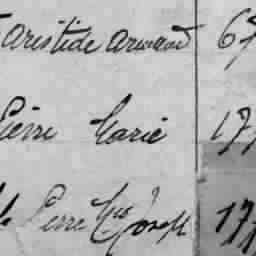 Aristide Armand 67
Pierre Marie 177
Pierre Joseph 177